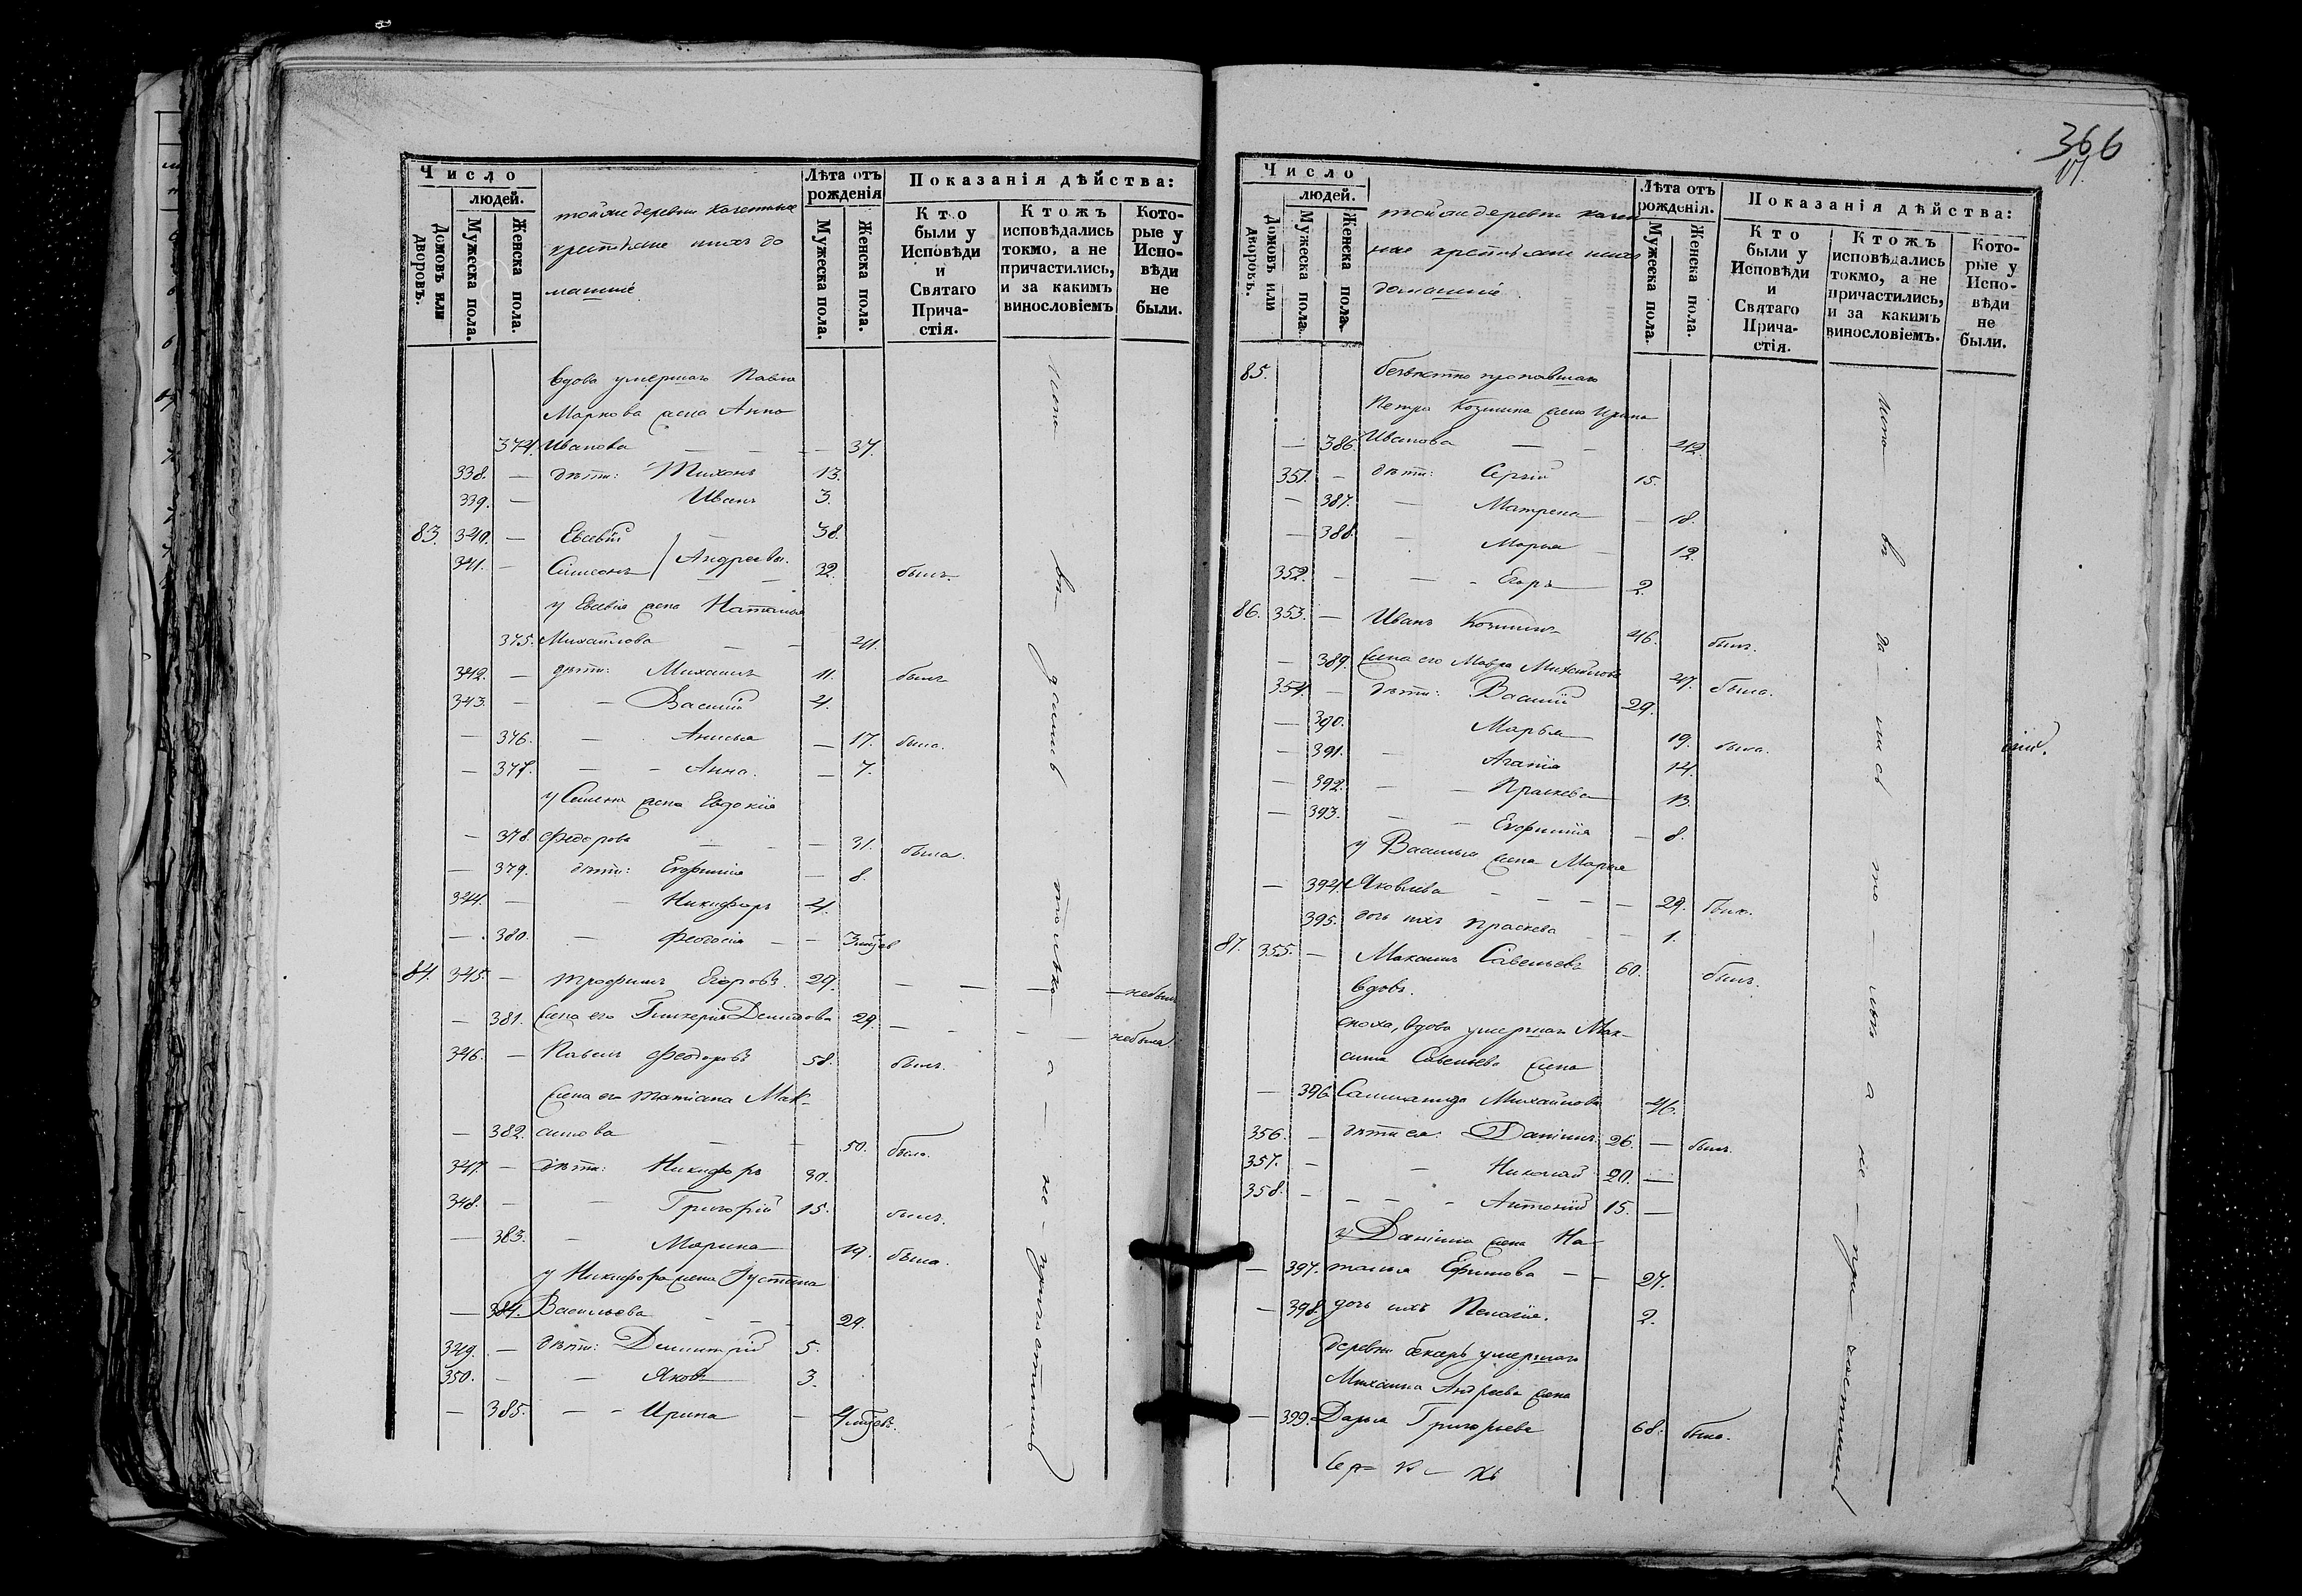 366
17.
Число
людей.
Домовъ или дворовъ.
Мужеска пола.
Женска пола.
тойже деревни
крестьяне ихъ до
машніе
Лѣта отъ рожденія
Мужеска пола.
Женска пола.
Показанія дѣйства:
Кто были у Исповѣди и Святаго Прича-стія.
Ктожъ исповѣдались токмо, а не причастились, и за какимъ винословіемъ
Кото-рые у Испо-вѣди не были.
вдова умершаго Павла
Маркова жена Анна
374. Иванова — — — 37.
338. — дѣти: Тихонъ 13.
339. — Иванъ 3.
83. 340. — Евсевій 38.
341. — Симеонъ Андреевы. 32. былъ.
у Евсевія жена Наталья
375. Михайлова — — 41.
342. — дѣти: Михаилъ 11. былъ
343. — — Василій 4.
— 376. — Анисья — 17. была.
— 377. — — Анна. — 7.
у Симеона жена Евдокія
— 378. Федорова — — — 31. была.
— 379. дѣти: Евфимія — 8.
344. — — Никифоръ 4.
— 380. — Феодосія — —
84. 345. — Трофимъ Егоровъ. 29. — — — небылъ
— 381. жена его Гликерія Демидова 29. — — — небыла.
346. — Павелъ Феодоровъ 58. былъ.
жена его Татіана Мак-
— 382. симова — — 50. была.
347. — дѣти: Никифоръ 30.
348. — — Григорій 15. былъ.
— 383. — Марина 19. была.
у Никифора жена Іустина
— 384. Васильева — — 29.
349. — дѣти: Димитрій 5.
350. — — Яковъ 3.
— 385. — — Ирина —
а — не — причастились
Число
людей.
Домовъ или дворовъ.
Мужеска пола.
Женска пола.
тойже деревни
крестьяне ихъ
домашніе.
Лѣта отъ рожденія.
Мужеска пола.
Женска пола.
Показанія дѣйства:
Кто были у Исповѣди и Святаго Прича-стія.
Ктожъ исповѣдались токмо, а не причастились, и за какимъ винословіемъ.
Кото-рые у Испо-вѣди не были.
85. безвѣстно пропавшаго
Петра Козмина жена Ирина
— 386. Иванова — — 42.
351. — дѣти: Сергій 15.
— 387. — Матрена — 18.
— 388. — Марья — 12.
352. — — — Егоръ 2.
86. 353. — Иванъ Козминъ 46. былъ.
— 389. жена его Мавра Михайлова 47. была.
354. — дѣти: Василій 29.
— 390. Марья 19. была.
— 391. — Агапія 14.
— 392. — — Праскева 13.
— 393. — — Евфимія — 8.
у Василья жена Марья
— 394. Яковлева — — — — 29. была.
395. дочь ихъ Праскева — — 1.
87. 355. — Максимъ Савельевъ 60. былъ.
вдовъ.
сноха, вдова умершаго Мак-
сима Савельева жена
— 396. Михайлова 46.
356. — дѣти ея: Даніилъ 26. — былъ.
357. — — Николай 20. —
358. — — — — Антоній 15. —
у Даніила жена На-
— 397. талья Ефимова — — 27.
— 398. дочь ихъ Пелагія. 2.
деревни умершаго
Михаила Андреева жена
— 399. Дарья Григорьева 68. была.
а не — причастились